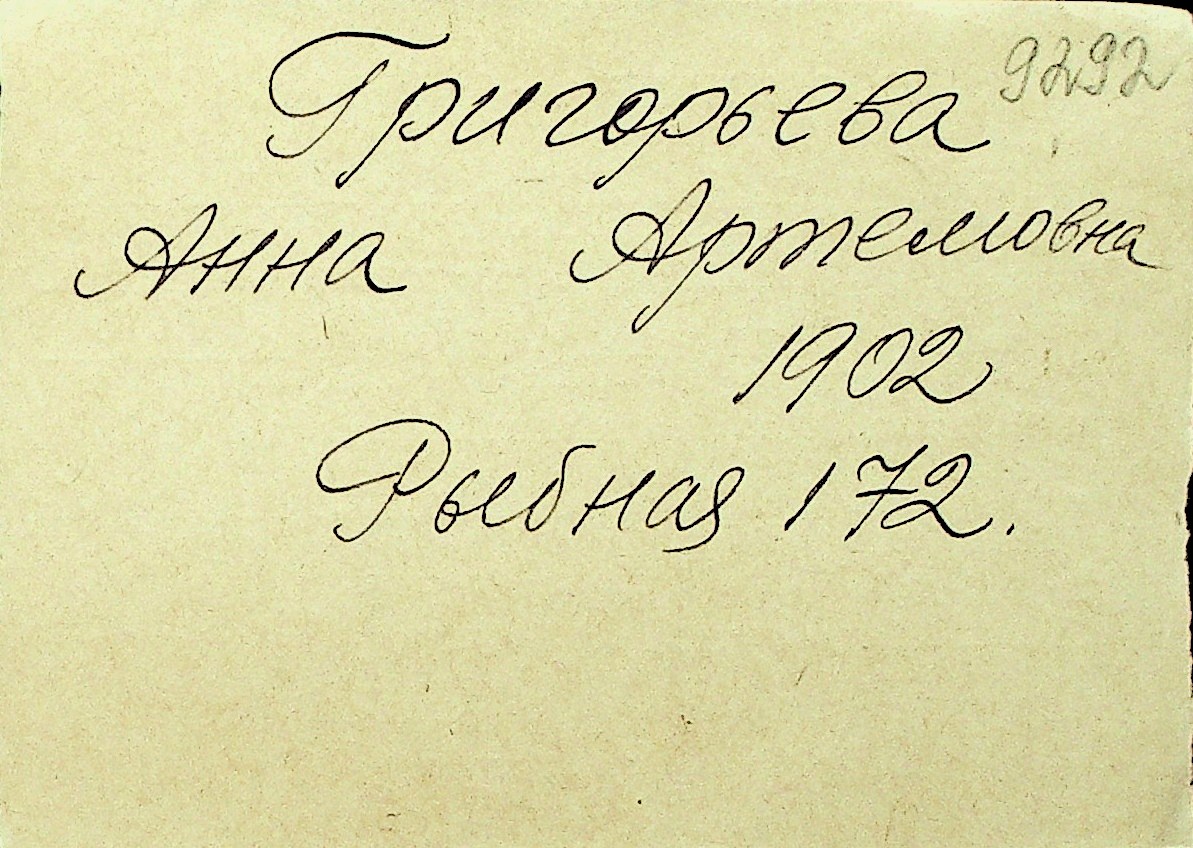 9292
Григорьева
Анна Артемовна
1902
Рыбная 172.